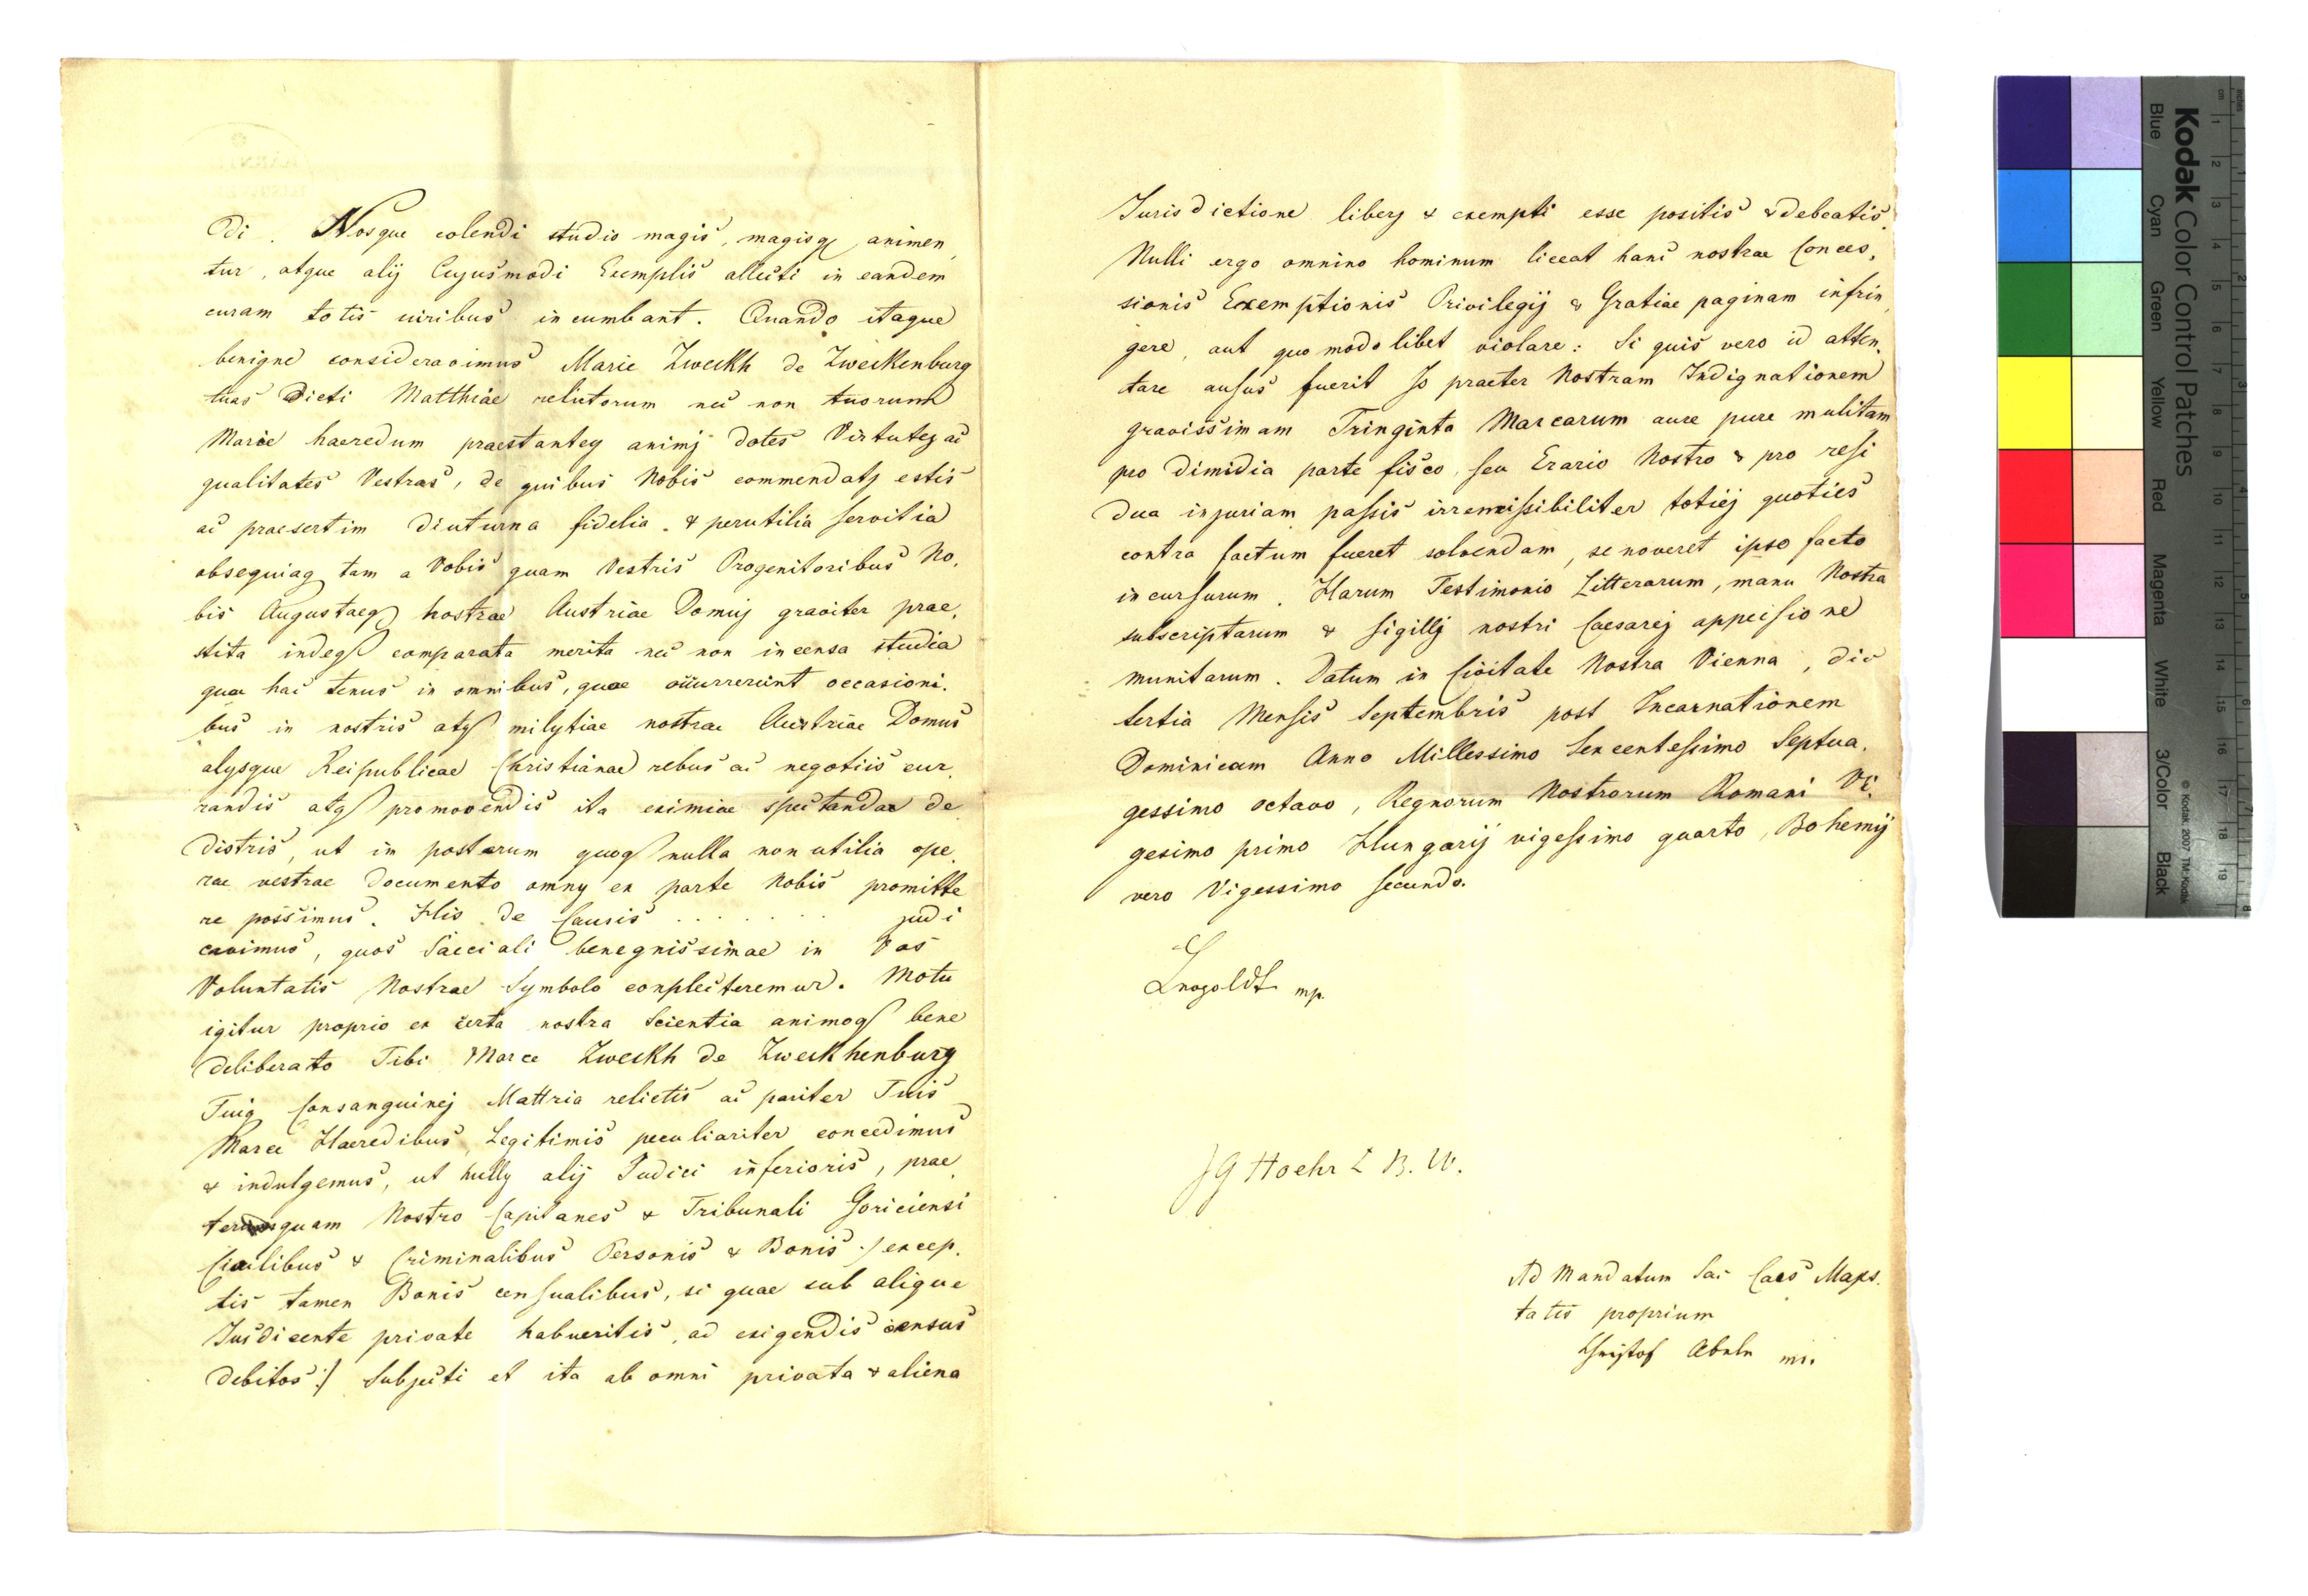 di. Nosque colendi studio magis, magisq animen,
tur, atque alij Cujusmodi Exemplis allecti in eandem
curam totis viribus incumbant. Quando itaque
benigne consideravimus Marie Zweckh de Zweckenburg
tuas Dicti Matthiae relictorum nec non tuorum
Marce haeredum praestantes animj dotes Virtutes ac
qualitates Vestras, de quibus Nobis commendatj estis
ac praesertim diuturna fidelia & perutilia servitia
obsequiaq tam a Vobis quam Vestris Progenitoribus No,
bis Augustaeq nostrae Austriae Domuj graviter prae,
stita indeq comparata merita nec non incensa studia
quae hac tenus in omnibus, quae occurrerunt occasioni,
bus in nostris atq milytiae nostrae Austriae Domus
alysque Reipublicae Christianae rebus ac negotiis cur,
randis atq promovendis ita eximiae spectandae de,
distris, ut in posterum quoq nulla non utilia ope,
rae vestrae documento omny ex parte Nobis promitte
re possimus. His de Causis . . . . . . . judi
cavimus, quos Saeciali benegnissimae in Vos
Voluntatis Nostrae Symbolo conplecteremur. Motu
igitur proprio ex certa nostra Scientia animoq bene
deliberato Tibi Marce Zweckh de Zweckhenburg
Tuiq Consanguinej Mattria relictis ac pariter Tuis
Marce Haeredibus Legitimis peculiariter concedimus
& indulgemus, ut nully alij Judici inferioris, prae,
quam Nostro Capitanes & Tribunali Goriciensi
Civilibus & Criminalibus Personis & Bonis :/ excep,
tis tamen Bonis censualibus, si quae sub alique
Jusdicente private habueritis, ad exigendis census
debitos :/ Subjecti et ita ab omni privata & aliena
Jurisdictione liberj & exempti esse positis & debeatis.
Nulli ergo omnino hominum liceat hanc nostrae Conces,
sionis Exemptionis Privilegij & Gratiae paginam infrin,
gere, aut quo modo libet violare: Si quis vero id atten,
tare ausus fuerit Is praeter Nostram Indignationem
gravissimam Tringinta Marcarum aure pure mulitam
pro dimidia parte fisco, seu Erario Nostro & pro resi
dua injuriam passis irremissibiliter totiej quoties
contra factum fueret solvendam, se noveret ipso facto
incursurum. Harum Testimonio Litterarum, manu Nostra
subscriptarum & sigillj nostri Caesarej appeisione
munitarum. Datum in Civitate Nostra Vienna, die
tertia Mensis Septembris post Incarnationem
Dominicam Anno Millessimo Sexcentessimo Septua,
gessimo octavo, Regnorum Nostrorum Romani Vi,
gesimo primo Hungarij vigessimo quarto, Bohemij
vero Vigessimo secundo.
Leopoldt mp.
JG Hoehr L B. W.
Ad Mandatum Sac Caes Majes.
tatis proprium
Christof Abele mp.
Kodak Color Control Patches
Blue Cyan Green Yellow Red Magenta White 3/Color Black
© Kodak, 2007 TM: Kodak
cm 1 2 3 4 5 6 7 8 9 10 11 12 13 14 15 16 17 18 19
inches 1 2 3 4 5 6 7 8